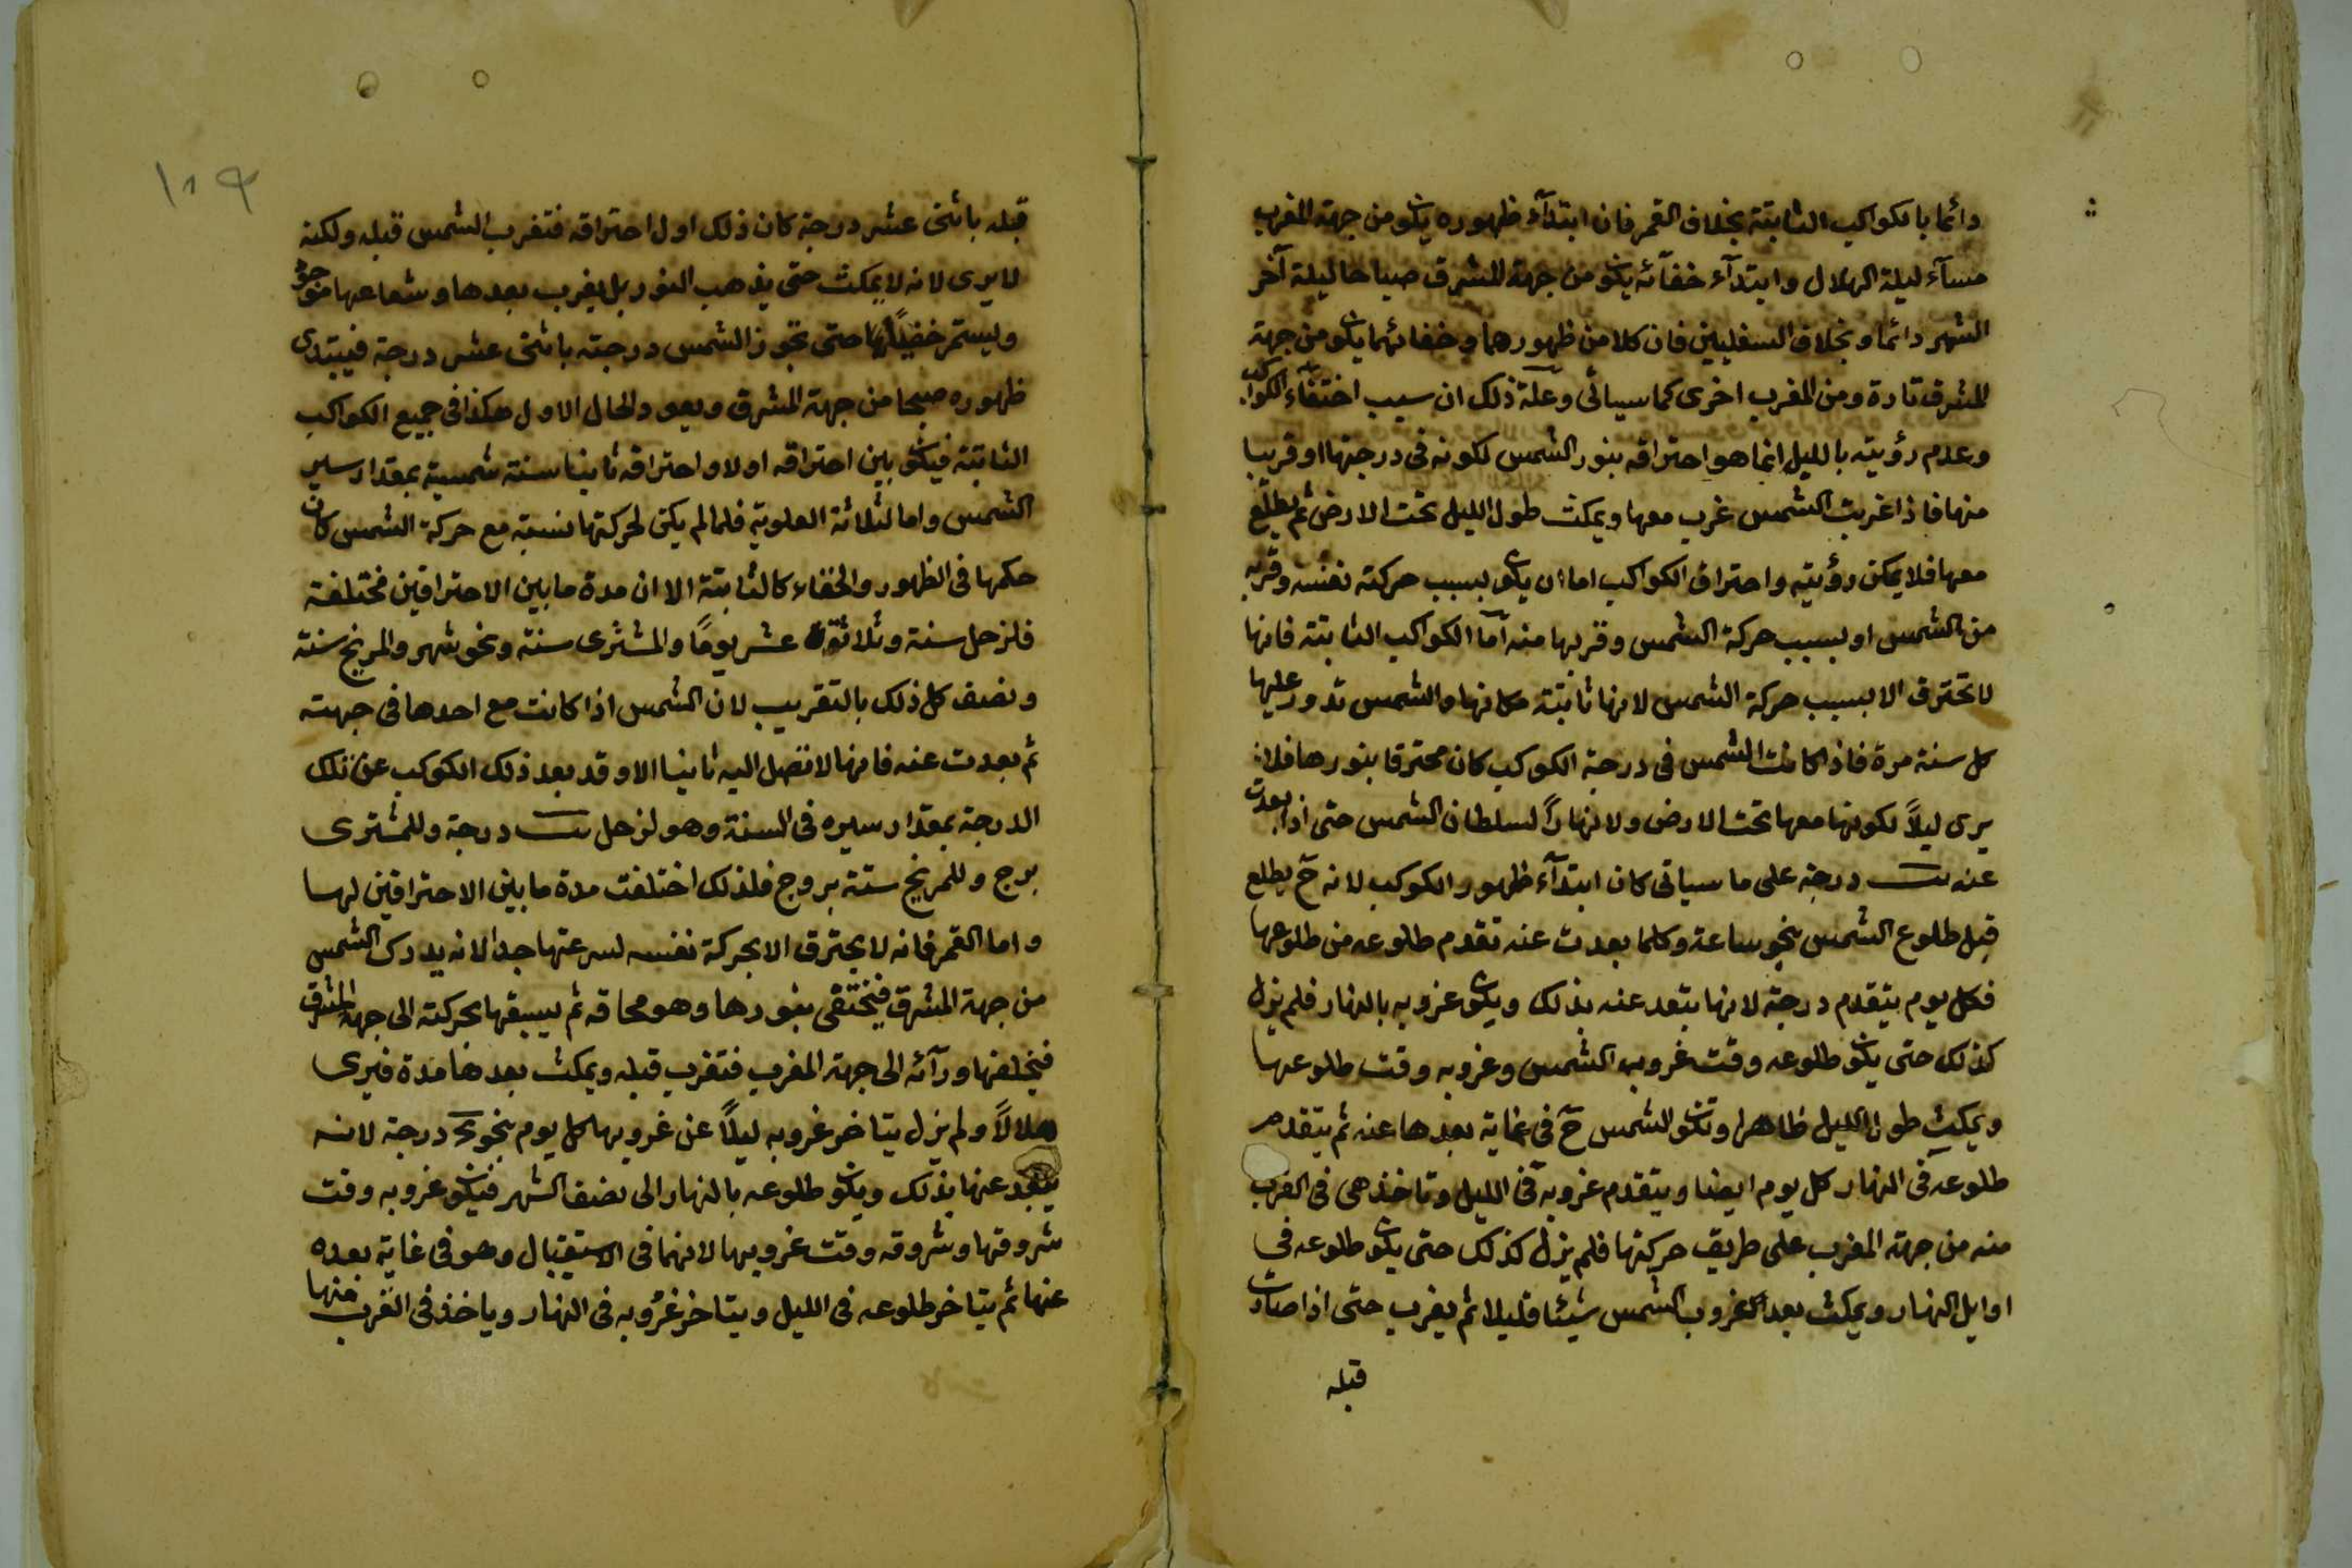 دائما بالكواكب الثابتة بخلاف القمر فان ابتدآء ظهوره يكون من جهة المغرب
مسآء ليلة الهلال وابتدآء خفآئه يكون من جهة المشرق صباحا ليلة آخر
الشهر دائما وبخلاف السفليين فان كلا من ظهورهما وخفائهما يكون من جهة
المشرق تارة ومن المغرب اخرى كما سيأتى وعلة ذلك ان سبب اختفآء الكواكب
وعدم رؤيته بالليل انما هو احتراقه بنور الشمس لكونه فى درجتها او قريبا
منها فاذا غربت الشمس غرب معها ويمكث طول الليل تحت الارض ثم يطلع
معها فلا يمكن رؤيته واحتراق الكواكب اما ان يكون بسبب حركته نفسه وقربه
من الشمس او بسبب حركة الشمس وقربها منه اما الكواكب الثابتة فانها
لا تحترق الا بسبب حركة الشمس لانها ثابتة مكانها والشمس تدور عليها
كل سنة مرة فاذا كانت الشمس فى درجة الكوكب كان محترقا بنورها فلا
يرى ليلاً لكونها معها تحت الارض ولا نهاراً لسلطان الشمس حتى اذا بعدت
عنه يب درجة على ما سياتى كان ابتدآء ظهور الكوكب لانه ح يطلع
قبل طلوع الشمس بنحو ساعة وكلما بعدت عنه تقدم طلوعه من طلوعها
فكل يوم يتقدم درجة لانها بتعد عنه بذلك ويكون غروبه بالنهار فلم يزل
كذلك حتى يكون طلوعه وقت غروب الشمس وغروبه وقت طلوعها
ويمكث طول الليل ظاهرا وتكون الشمس ح فى غاية بعدها عنه ثم يتقدم
طلوعه فى النهار كل يوم ايضا ويتقدم غروبه فى الليل وتاخذ هى فى القرب
منه من جهة المغرب على طريق حركتها فلم يزل كذلك حتى يكون طلوعه فى
اوايل النهار ويمكث بعد غروب الشمس شيئا قليلا ثم يغرب حتى اذا صارت
قبله
١٨٩
قبله باثنى عشر درجة كان ذلك اول احتراقه فتغرب الشمس قبله ولكنه
لا يرى لانه لا يمكث حتى يذهب النور بل يغرب بعدها وشعاعها موجود
ويستمر خفيا حتى تجوز الشمس درجته باثنى عشر درجة فيبتدى
ظهوره صبحا من جهة المشرق ويعود الحال الاول هكذا فى جميع الكواكب
الثابتة فيكون بين احتراقه اولا واحتراقه ثانيا سنة شمسية بمقدار سير
الشمس واما الثلاثة العلوية فلما لم يكن لحركتها نسبة مع حركة الشمس كان
حكمها فى الظهور والخفاء كالثابتة الا ان مدة ما بين الاحتراقين مختلفة
فلزحل سنة وثلاثة عشر يومًا والمشترى سنة ونحو شهر والمريخ سنة
ونصف كل ذلك بالتقريب لان الشمس اذا كانت مع احدها فى جهته
ثم بعدت عنه فانها لا تصل اليه ثانيا الا وقد بعد ذلك الكوكب عن تلك
الدرجة بمقدار سيره فى السنة وهو لزحل يب درجة وللمشترى
برج وللمريخ ستة بروج فلذلك اختلفت مدة ما بين الاحتراقين لها
واما القمر فانه لا يحترق الا بحركة نفسه لسرعتها جدا لانه يدرك الشمس
من جهة المشرق فيختفى بنورها وهو محاقه ثم يسبقها بحركته الى جهة المشرق
فيخلفها ورآئه الى جهة المغرب فتغرب قبله ويمكث بعدها مدة فيرى
هلالاً ولم يزل يتاخر غروبه ليلاً عن غروبها كل يوم بنحو درجة لانه
يبعد عنها بذلك ويكون طلوعه بالنهار الى نصف الشهر فيكون غروبه وقت
شروقها وشروقه وقت غروبها لانهما فى الاستقبال وهو فى غاية بعده
عنها ثم يتاخر طلوعه فى الليل ويتاخر غروبه فى النهار وياخذ فى القرب منها